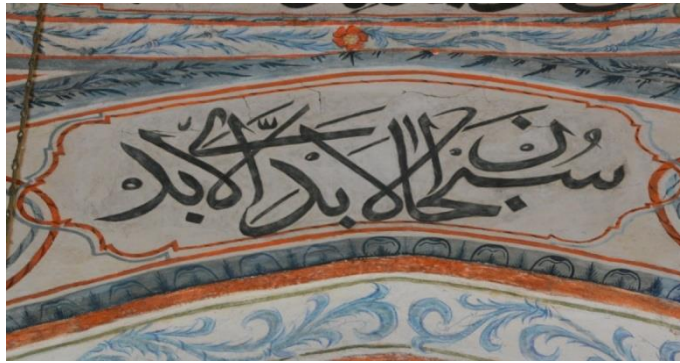 سبحان الابدي الابد